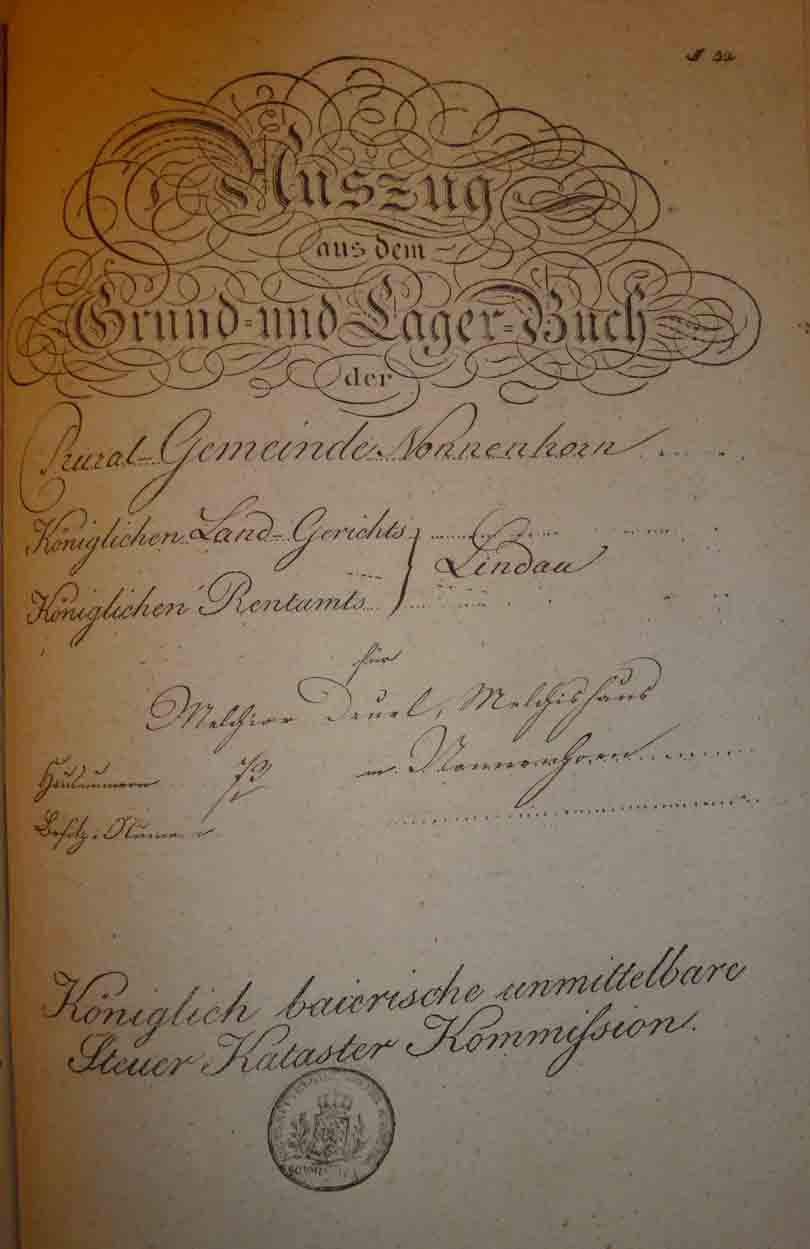 Auszug
aus dem
Grund-und Lager-Buch
der
Rural-Gemeinde Nonnenhorn
Königlichen Land-Gerichts
Lindau
Königlichen Rentamts
für
Melchior Deuel, Melchishaus
Hausnummer 73 in Nonnenhorn
Besitz-Numer
Königlich baierische unmittelbare
Steuer Kataster Kommission.